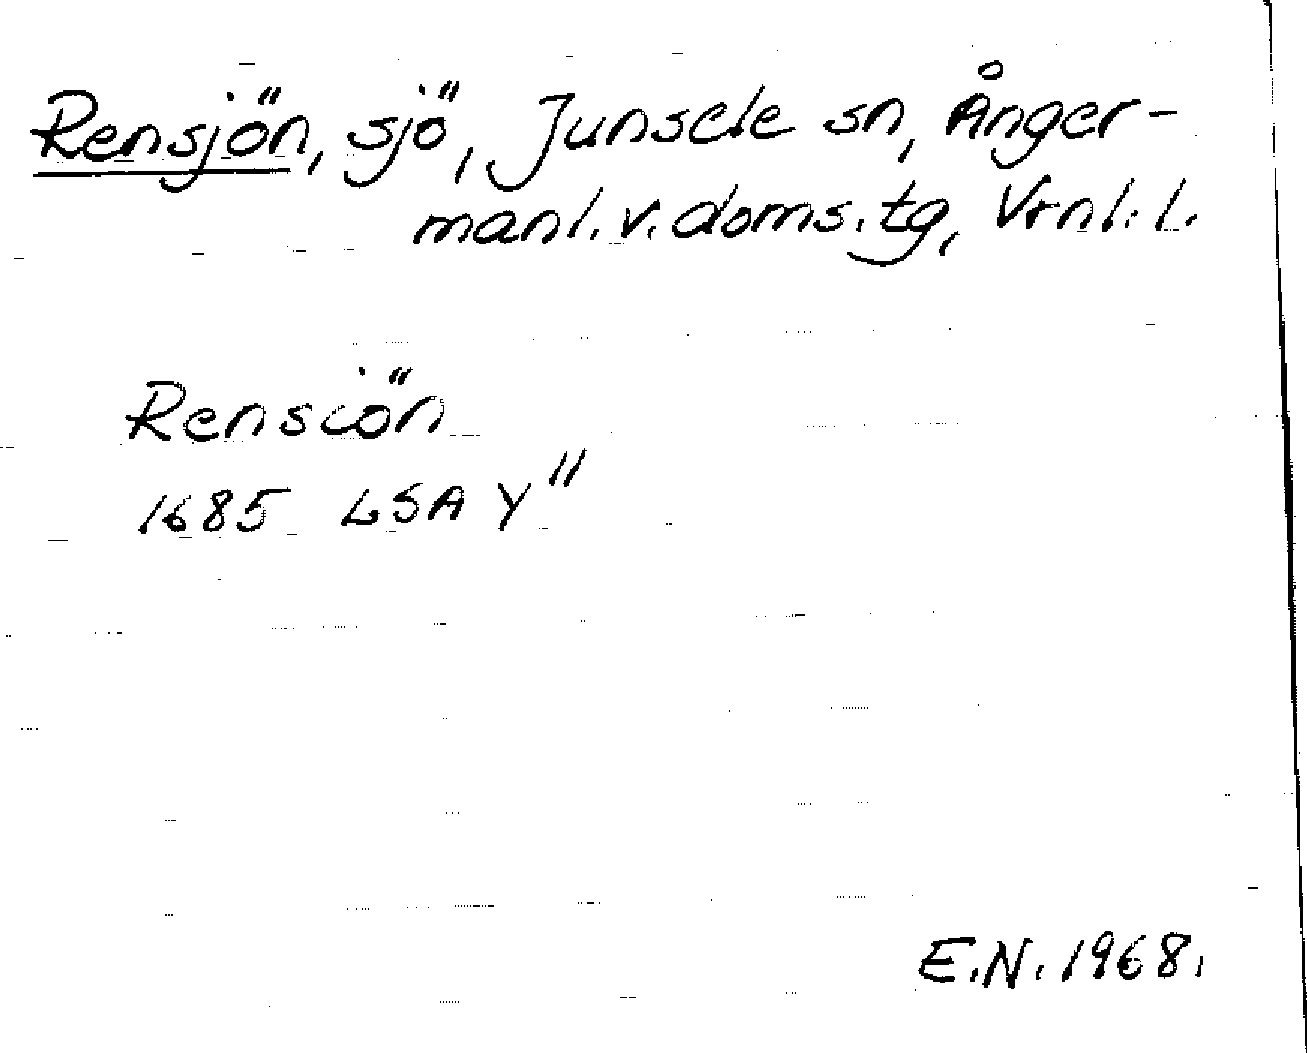 Rensjön, sjö, Junsele sn, Ånger-
manl. v. doms. tg, Vrnl. l.
Rensiön
1685 LSA Y"
E.N. 1968.